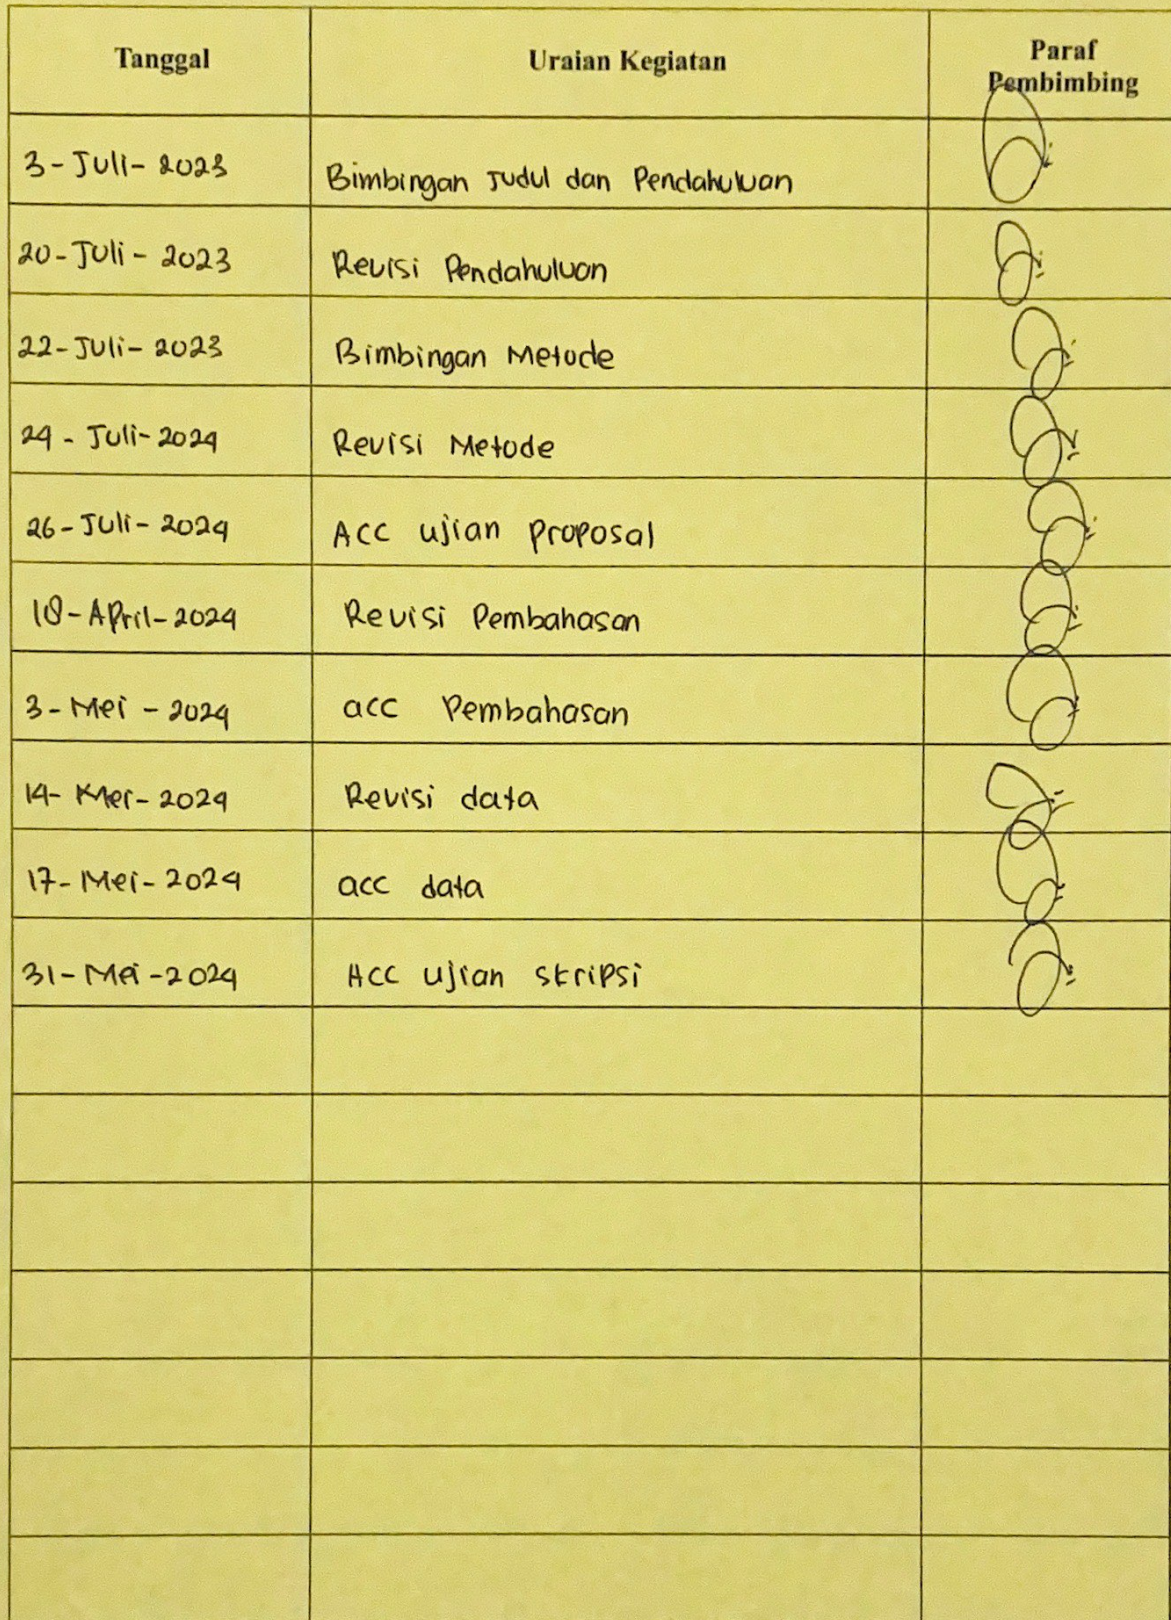 Tanggal Uraian Kegiatan Paraf
Pembimbing
3-Juli-2023 Bimbingan Judul dan Pendahuluan
20-Juli-2023 Revisi Pendahuluan
22-Juli-2023 Bimbingan Metode
24-Juli-2024 Revisi Metode
26-Juli-2024 ACC ujian proposal
18-April-2024 Revisi Pembahasan
3-Mei-2024 acc Pembahasan
14-Mei-2024 Revisi data
17-Mei-2024 acc data
31-Mei-2024 Acc ujian skripsi